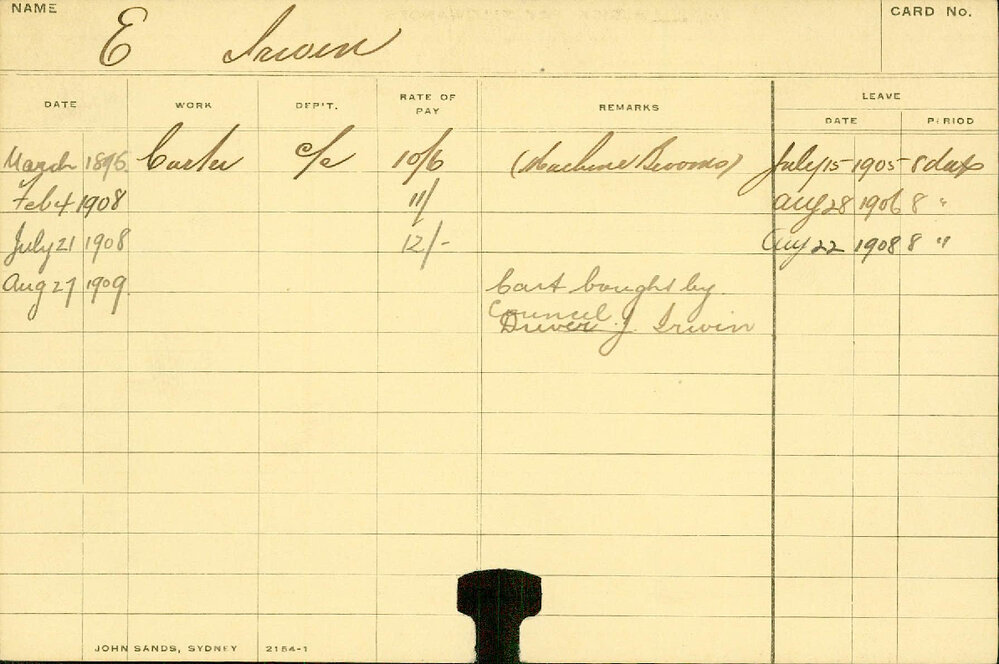 NAME E Irwin CARD No.
DATE WORK DEP'T. RATE OF PAY REMARKS LEAVE
DATE PERIOD
March 1895 Carter c/c 10/6 (Machine Brooms) July 15 1905 8 days
Feb 4 1908 11/ Aug 28 1906 8 "
July 21 1908 12/- Aug 22 1908 8 "
Aug 27 1909 Cart bought by
Council
Driver J. Irwin
JOHN SANDS, SYDNEY 2154-1